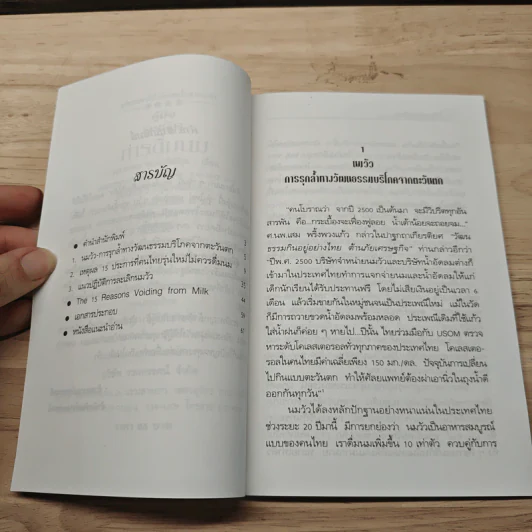 สารบัญ
● คำนำสำนักพิมพ์ 3
1. นมวัว-การรุกล้ำทางวัฒนธรรมบริโภคจากตะวันตก
2. เหตุผล 15 ประการที่คนไทยรุ่นใหม่ไม่ควรดื่มนม
3. แนวปฏิบัติการละเลิกนมวัว 35
● The 15 Reasons Voiding from Milk 44
● เอกสารประกอบ
● หนังสือแนะนำอ่าน
1
นมวัว
การรุกล้ำทางวัฒนธรรมบริโภคจากตะวันตก
"คนโบราณว่า จากปี 2500 เป็นต้นมา จะมีวิปริตทุกอัน
สารพัน คือ...กระเบื้องจะเฟื่องฟูลอย น้ำเต้าน้อยจะถอยจม..."
ศ.นพ.เสม พริ้งพวงแก้ว กล่าวในปาฐกถาเกียรติยศ "วัฒน
ธรรมกินอยู่อย่างไทย ต้านภัยเศรษฐกิจ" ท่านกล่าวอีกว่า
"ปีพ.ศ. 2500 บริษัทจำหน่ายนมวัวและบริษัทน้ำอัดลมต่างก็
เข้ามาในประเทศไทยทำการแจกจ่ายนมและน้ำอัดลมให้แก่
เด็กนักเรียนได้รับประทานฟรี โดยไม่เสียเงินอยู่เป็นเวลา 6
เดือน แล้วเริ่มขายกันในหมู่ชนจนเป็นประเพณีใหม่ แม้ในวัด
ก็มีการถวายขวดน้ำอัดลมพร้อมหลอด ประเพณีเดิมที่ใช้แก้ว
ใส่น้ำฝนก็ค่อย ๆ หายไป...ปีนั้น ไทยร่วมมือกับ USOM ตรวจ
หาระดับโคเลสเตอรอลทั่วทุกภาคของประเทศไทย โคเลสเตอ-
รอลในคนไทยมีค่าเฉลี่ยเพียง 150 มก./ดล. ปัจจุบันการเปลี่ยน
ไปกินแบบตะวันตก ทำให้ศัลยแพทย์ต้องผ่าเอานิ่วในถุงน้ำดี
ออกกันทุกวัน"¹
นมวัวได้ลงหลักปักฐานอย่างหนาแน่นในประเทศไทย
ช่วงระยะ 20 ปีมานี้ มีการยกย่องว่า นมวัวเป็นอาหารสมบูรณ์
แบบของคนไทย เราดื่มนมเพิ่มขึ้น 10 เท่าตัว ควบคู่กับการ